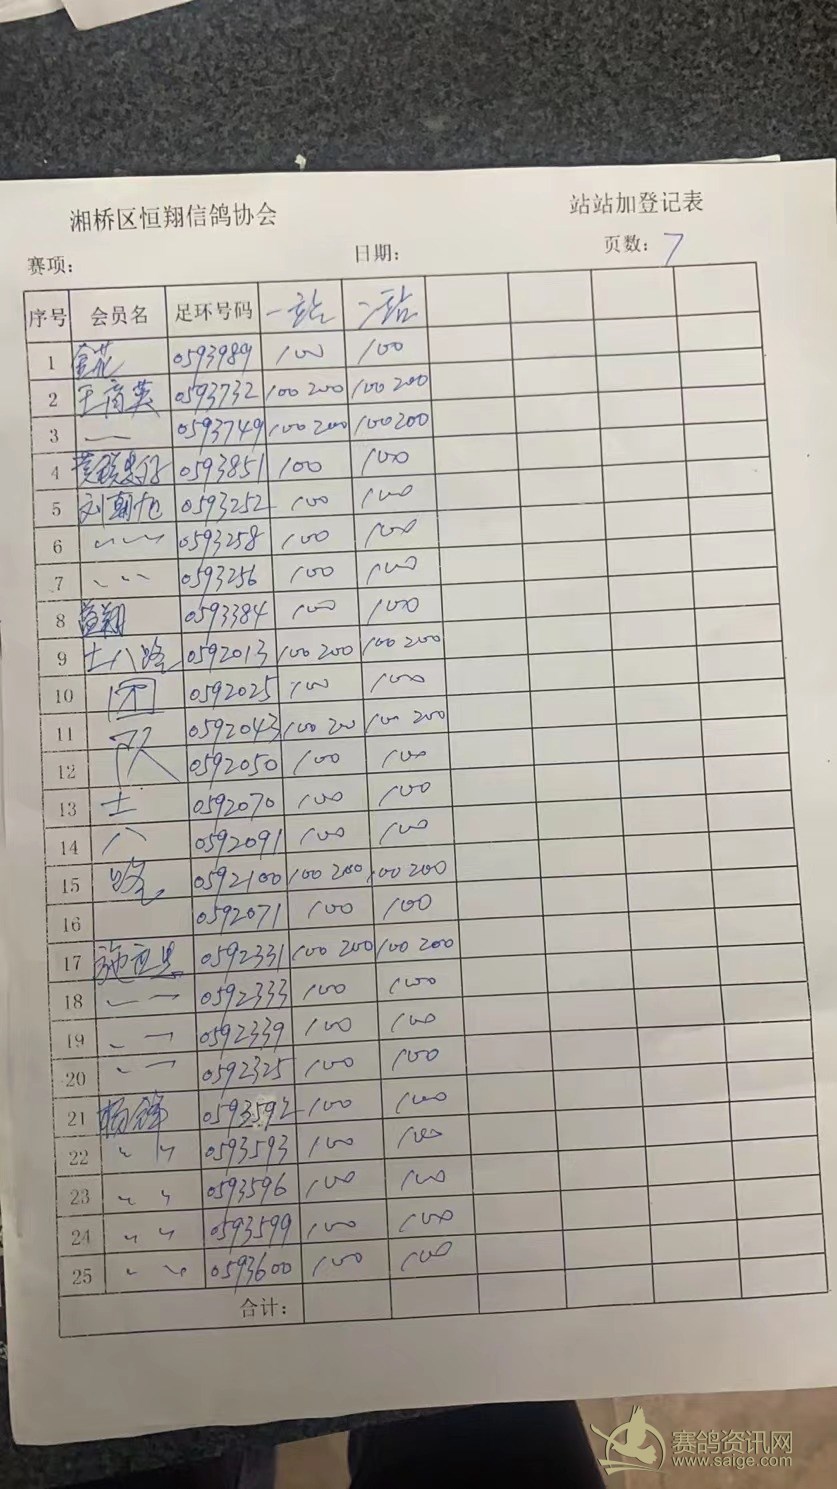 湘桥区恒翔信鸽协会 站站加登记表
赛项: 日期: 页数: 7
序号 会员名 足环号码 一站 二站
1 金花 0593989 100 100
2 王商英 0593732 100 200 100 200
3 〃 0593749 100 200 100 200
4 0593851 100 100
5 刘朝旭 0593252 100 100
6 〃 〃 〃 0593258 100 100
7 〃 〃 〃 0593256 100 100
8 0593384 100 100
9 士八路 0592013 100 200 100 200
10 团 0592025 100 100
11 0592043 100 200 100 200
12 队 0592050 100 100
13 士 0592070 100 100
14 八 0592091 100 100
15 路 0592100 100 200 100 200
16 0592071 100 100
17 0592331 100 200 100 200
18 〃 〃 0592333 100 100
19 〃 〃 0592339 100 100
20 〃 〃 0592325 100 100
21 杨锋 0593592 100 100
22 〃 〃 0593593 100 100
23 〃 〃 0593596 100 100
24 〃 〃 0593599 100 100
25 〃 〃 0593600 100 100
合计:
赛鸽资讯网
www.saige.com